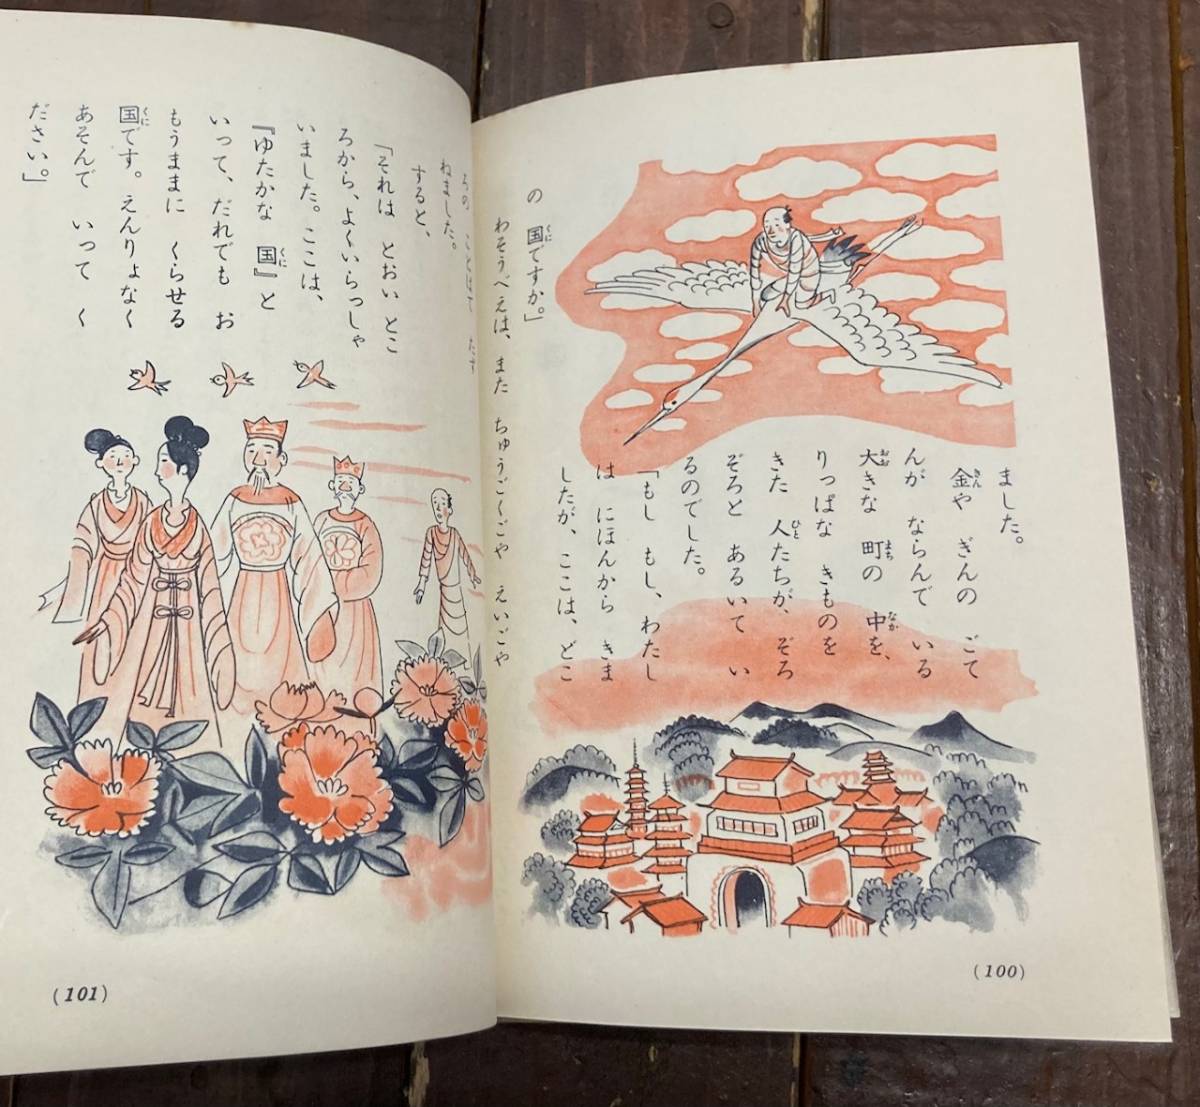 ました。
金や　ぎんの　ごて
んが　ならんで　いる
大きな　町の　中を、
りっぱな　きものを
きた　人たちが、ぞろ
ぞろと　あるいて　い
るのでした。
「もし　もし、わたし
は　にほんから　きま
したが、ここは、どこ
の　国ですか。」
わそうべえは、また　ちゅうごくごや　えいごや
ろの　ことばで　たず
ねました。
すると、
「それは　とおい　とこ
ろから、よくいらっしゃ
いました。ここは、
『ゆたかな　国』と
いって、だれでも　お
もうままに　くらせる
国です。えんりょなく
あそんで　いって　く
ださい。」
(100)
(101)